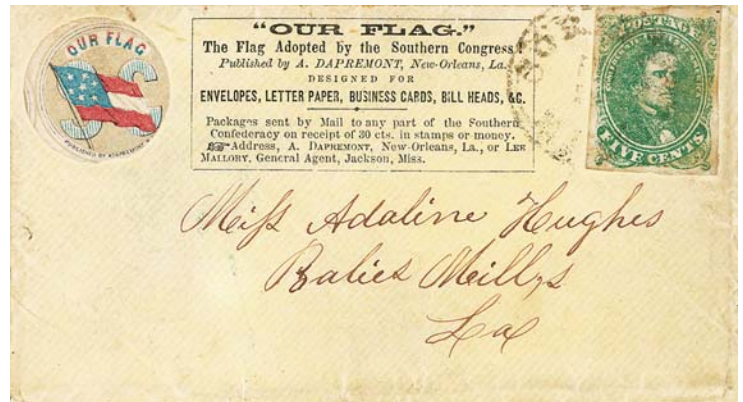 OUR FLAG
S C
PUBLISHED BY A DAPREMONT N.O.
"OUR FLAG."
The Flag Adopted by the Southern Congress!
Published by A. DAPREMONT, New-Orleans, La.
DESIGNED FOR
ENVELOPES, LETTER PAPER, BUSINESS CARDS, BILL HEADS, &C.
Packages sent by Mail to any part of the Southern
Confederacy on receipt of 30 cts. in stamps or money.
☞Address, A. DAPREMONT, New-Orleans, La., or LEE
MALLORY, General Agent, Jackson, Miss.
POSTAGE
CONFEDERATE STATES OF AMERICA
FIVE CENTS
Miss Adaline Hughes
Balies Mills
La